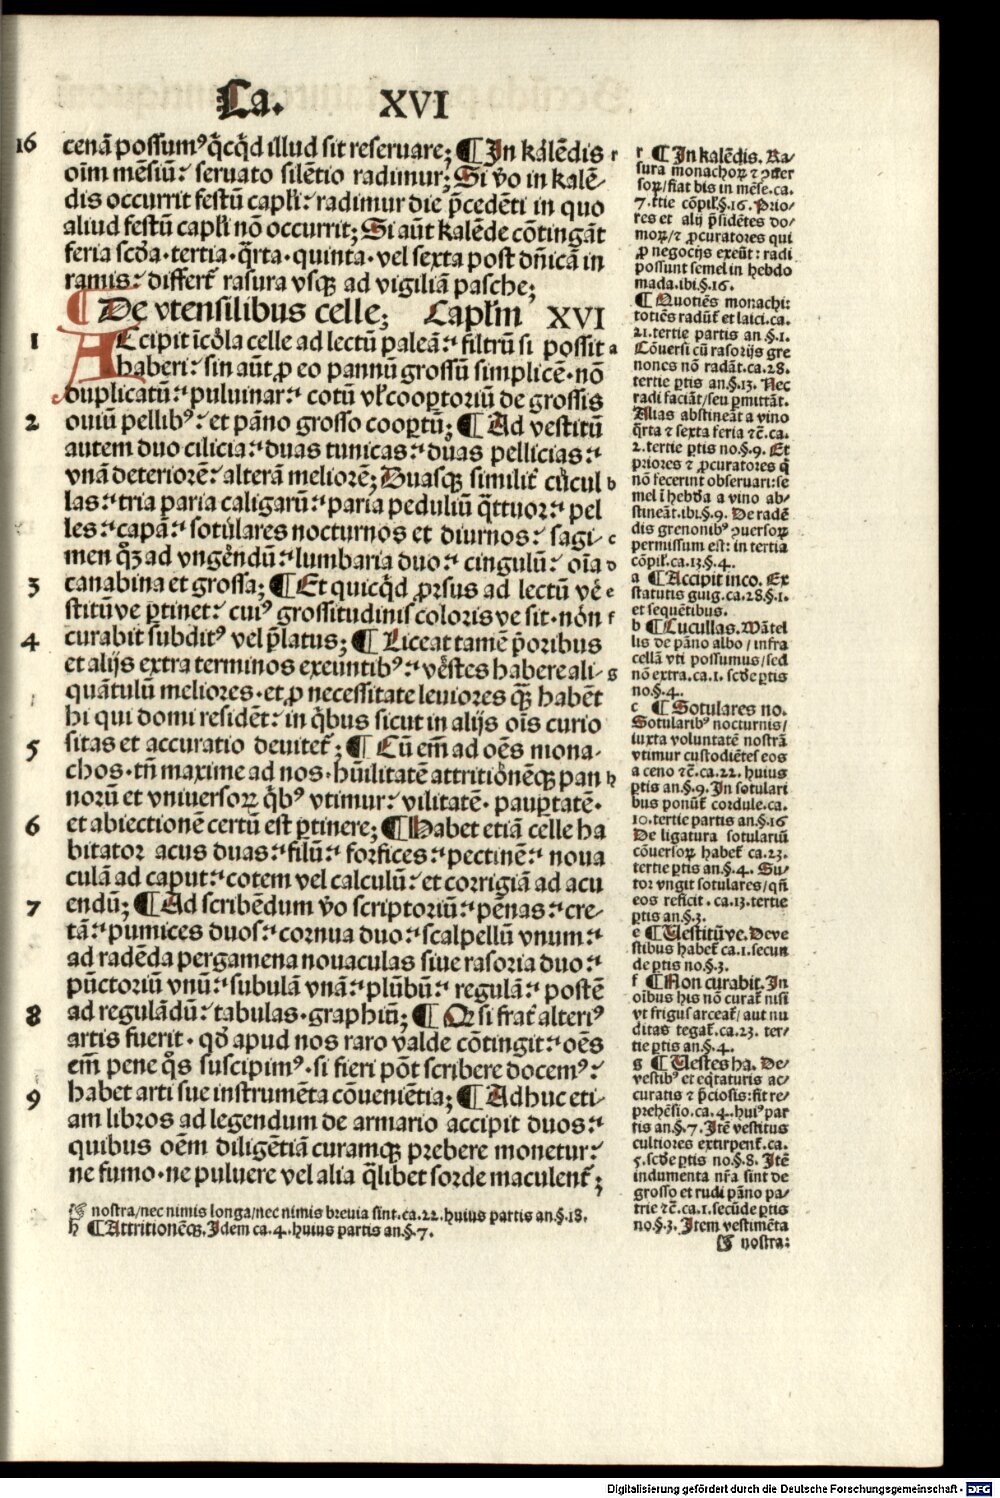 Ca. XVI
16 cenā possumꝰ q̄cq̄d illud sit reseruare; ¶ In kalēdis r
oīm mēsiū: seruato silētio radimur; Si v̄o in kalē-
dis occurrit festū capl'i: radimur die p̄cedēti in quo
aliud festū capl'i nō occurrit; Si aūt kalēde cōtingāt
feria scd̄a · tertia · q̄rta · quinta · vel sexta post dn̄icā in
ramis: differt᷑ rasura vsqꝫ ad vigiliā pasche;
¶ De vtensilibus celle; Capl'm XVI
1 Accipit īcola celle ad lectū paleā: filtrū si possit a
haberi: sin aūt ꝓ eo pannū grossū simplicē · nō
duplicatū: puluinar: cotū vl' cooptoriū de grossis
2 ouiū pellibꝰ: et pāno grosso coop̲tū; ¶ Ad vestitū
autem duo cilicia: duas tunicas: duas pellicias:
vnā deteriorē: alterā meliorē; Duasqꝫ similit᷑ cucul b
las: tria paria caligarū: paria peduliū q̄ttuor: pel
les: capā: sotulares nocturnos et diurnos: sagi- c
men qꝫ ad vngēdū: lumbaria duo: cingulū: oīa d
3 canabina et grossa; ¶ Et quicq̄d ꝓrsus ad lectū vē e
stitūve ꝑtinet: cuiꝰ grossitudinis coloris ve sit · nōn f
4 curabit subditꝰ vel p̄latus; ¶ Liceat tamē p̄oribus
et alijs extra terminos exeuntibꝰ: vestes habere ali- g
quātulū meliores · et ꝓ necessitate leuiores q̄ꝫ habēt
hi qui domi residēt: in q̄bus sicut in alijs oīs curio
5 sitas et accuratio deuitet᷑; ¶ Cū em̄ ad oēs mona-
chos · tn̄ maxime ad nos · hūilitatē attritionēqꝫ pan h
norū et vniuersoꝝ q̄bꝰ vtimur: vilitatē · pauꝑtatē ·
6 et abiectionē certū est ꝑtinere; ¶ Habet etiā celle ha
bitator acus duas: filū: forfices: pectinē: noua
culā ad caput: cotem vel calculū: et corrigiā ad acu
7 endū; ¶ Ad scribēdum v̄o scriptoriū: pēnas: cre-
tā: pumices duos: cornua duo: scalpellū vnum:
ad radēda pergamena nouaculas siue rasoria duo:
pūctoriū vnū: subulā vnā: plūbū: regulā: postē
8 ad regulādū: tabulas · graphiū; ¶ Qꝫ si frat᷑ alteriꝰ
artis fuerit · qd̄ apud nos raro valde cōtingit: oēs
em̄ pene q̄s suscipimꝰ · si fieri pōt scribere docemꝰ:
9 habet arti sue instrumēta cōueniētia; ¶ Adhuc eti-
am libros ad legendum de armario accipit duos:
quibus oēm diligētiā curamqꝫ prebere monetur:
ne fumo · ne puluere vel alia q̄libet sorde maculent᷑;
☞ nostra/nec nimis longa/nec nimis breuia sint.ca.22.huius partis an.§.18.
h ¶ Attritionēqꝫ. Idem ca.4.huius partis an.§.7.
r ¶ In kalēdis. Ra/
sura monachoꝝ ⁊ ꝯuer
soꝝ/fiat bis in mēse.ca.
7.ttie cōpil'.§.16. Prio/
res et alij p̄sidētes do/
moꝝ/⁊ ꝓcuratores qui
ꝓ negocijs exeūt: radi
possunt semel in hebdo
mada.ibi.§.16.
¶ Quotiēs monachi:
totiēs radūt᷑ et laici.ca.
21.tertie partis an.§.1.
Cōuersi cū rasorijs gre
nones nō radāt.ca.28.
tertie ꝑtis an.§.13. Nec
radi faciāt/seu ꝑmittāt.
Alias abstineāt a vino
q̄rta ⁊ sexta feria ⁊c̄.ca.
2.tertie ꝑtis no.§.9. Et
priores ⁊ ꝓcuratores q̄
nō fecerint obseruari: se
mel ī hebd̄a a vino ab/
stineāt.ibi.§.9. De radē
dis grenonibꝰ ꝯuersoꝝ
permissum est: in tertia
cōpil'.ca.13.§.4.
a ¶ Accipit inco. Ex
statutis guig.ca.28.§.1.
et sequētibus.
b ¶ Cucullas. Mātel
lis de pāno albo/infra
cellā vti possumus/sed
nō extra.ca.1.scd̄e ꝑtis
no.§.4.
c ¶ Sotulares no.
Sotularibꝰ nocturnis/
iuxta voluntatē nostrā
vtimur custodiētes eos
a ceno ⁊c̄.ca.22. huius
ꝑtis an.§.9. In sotulari
bus ponūt᷑ cordule.ca.
10.tertie partis an.§.16
De ligatura sotulariū
cōuersoꝝ habet᷑ ca.23.
tertie ꝑtis an.§.4. Su/
tor vngit sotulares/qn̄
eos reficit.ca.13.tertie
ꝑtis an.§.3.
e ¶ Uestitūve. De ve
stibus habet᷑ ca.1.secun
de ꝑtis no.§.3.
f ¶ Non curabit. In
oībus his nō curat᷑ nisi
vt frigus arceat᷑/aut nu
ditas tegat᷑.ca.23. ter/
tie ꝑtis an.§.4.
g ¶ Uestes ha. De/
vestibꝰ et eq̄taturis ac/
curatis ⁊ p̄ciosis: fit re/
prehēsio.ca.4.huiꝰ par
tis an.§.7. Itē vestitus
cultiores extirpent᷑.ca.
5.scd̄e ꝑtis no.§.8. Itē
indumenta nr̄a sint de
grosso et rudi pāno pa/
trie ⁊c̄.ca.1.secūde ꝑtis
no.§.3. Item vestimēta
☞ nostra:
Digitalisierung gefördert durch die Deutsche Forschungsgemeinschaft - DFG